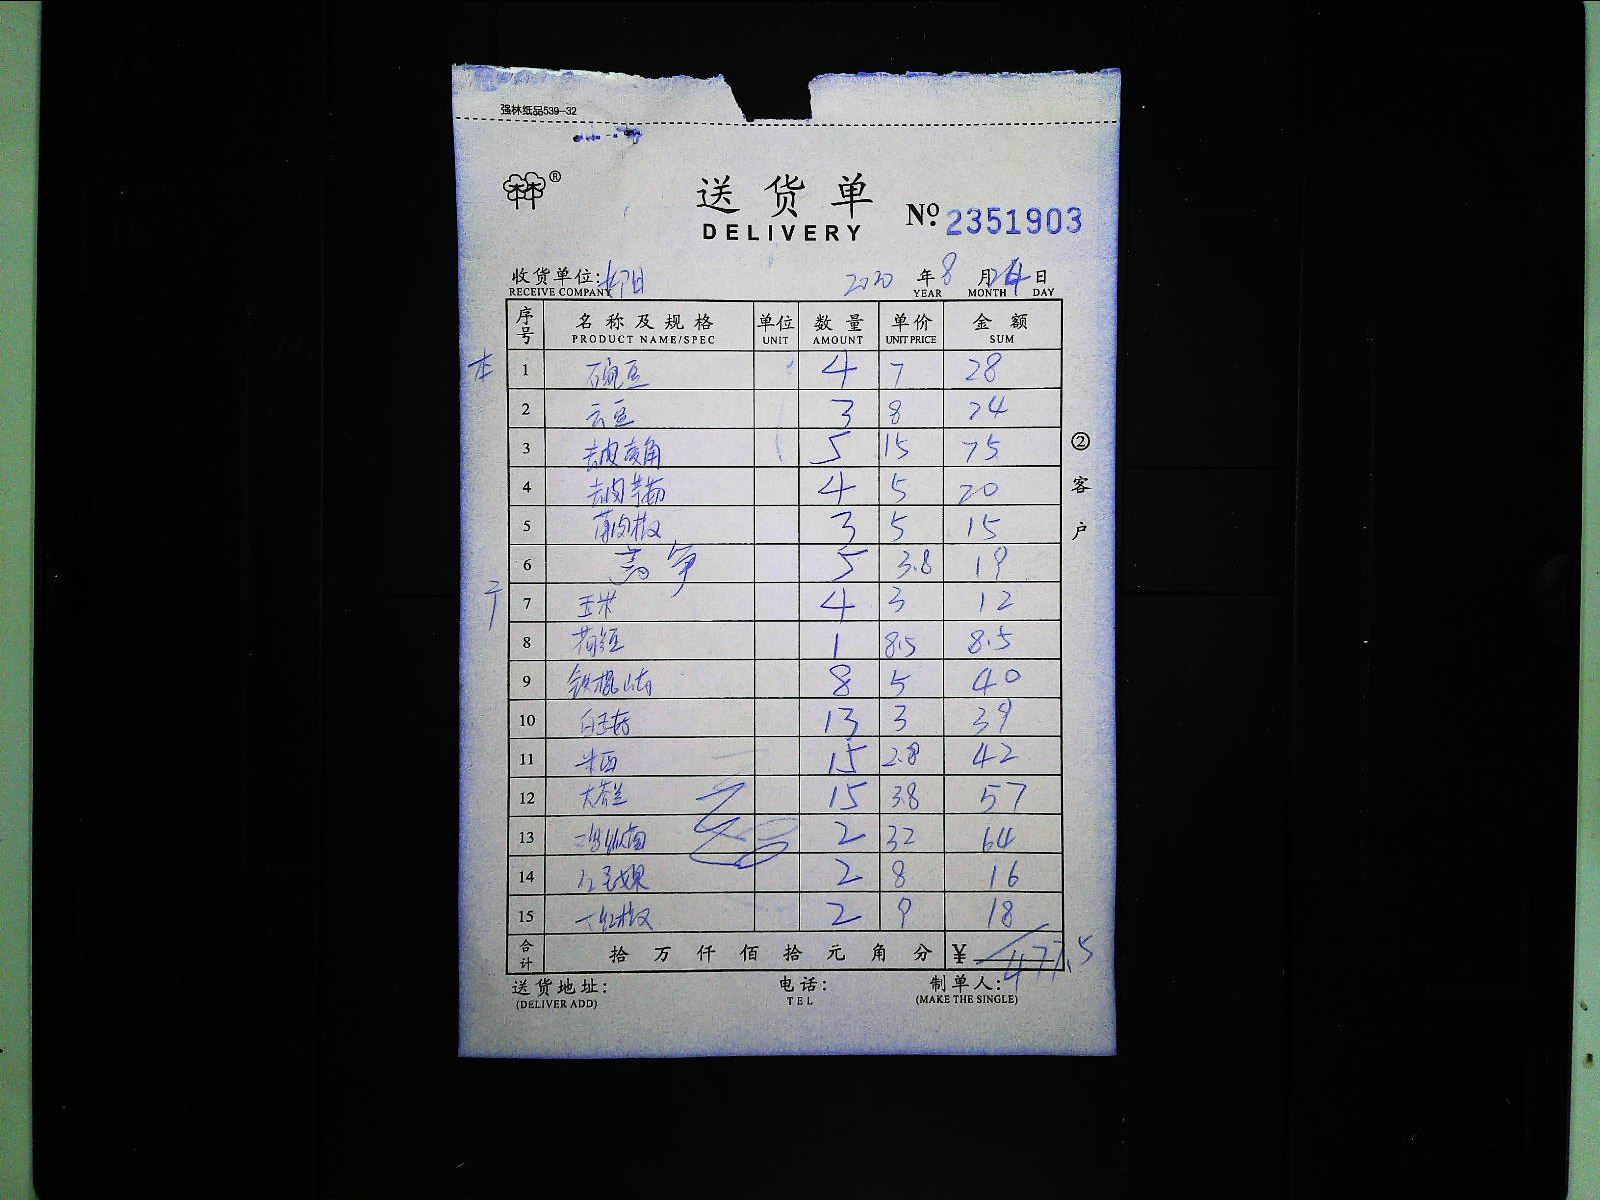 强林纸品539-32
® 送货单
DELIVERY
№ 2351903
收货单位: 2020 年 8 月 24 日
RECEIVE COMPANY YEAR MONTH DAY
序号 名称及规格 单位 数量 单价 金额
PRODUCT NAME/SPEC UNIT AMOUNT UNIT PRICE SUM
本 1 豌豆 4 7 28
2 云豆 3 8 24
3 去皮菱角 5 15 75
4 去皮芋艿 4 5 20
5 薄肉椒 3 5 15
6 高笋 5 3.8 19
7 玉米 4 3 12
8 荷豆 1 8.5 8.5
9 铁棍山药 8 5 40
10 13 3 39
11 米西 15 2.8 42
12 15 3.8 57
13 2 32 64
14 2 8 16
15 2 9 18
合计 拾万仟佰拾元角分 ¥ 477.5
送货地址: 电话: 制单人:
(DELIVER ADD) TEL (MAKE THE SINGLE)
②客户